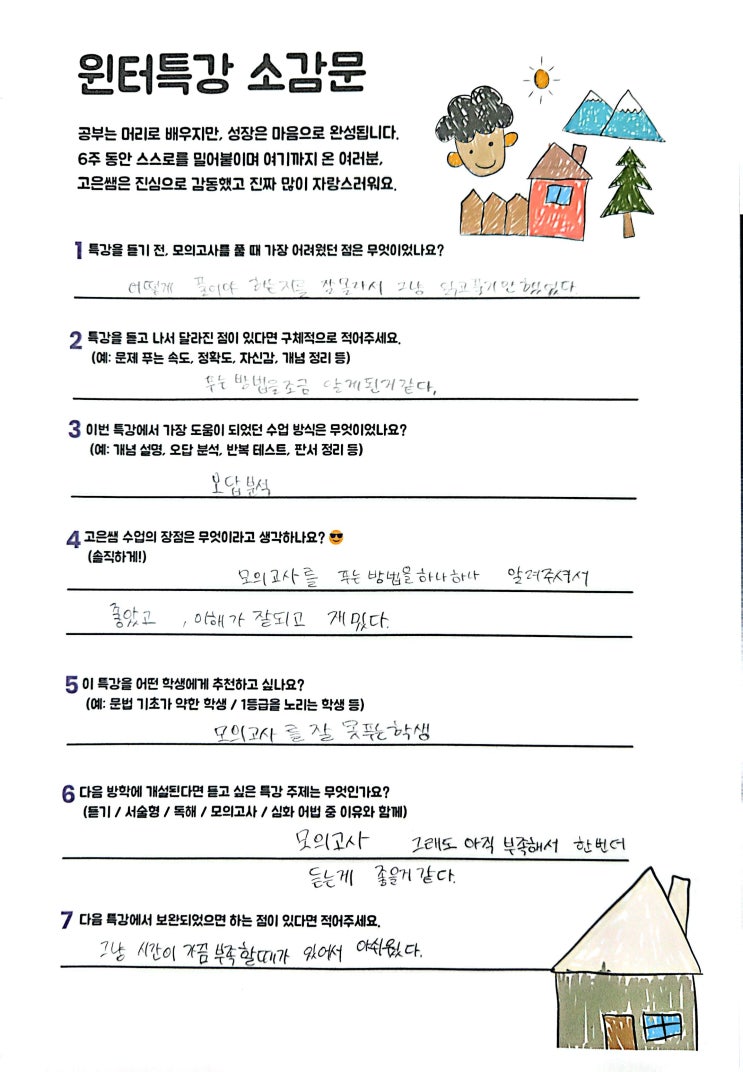 윈터특강 소감문
공부는 머리로 배우지만, 성장은 마음으로 완성됩니다.
6주 동안 스스로를 밀어붙이며 여기까지 온 여러분,
고은쌤은 진심으로 감동했고 진짜 많이 자랑스러워요.
1 특강을 듣기 전, 모의고사를 풀 때 가장 어려웠던 점은 무엇이었나요?
어떻게 풀어야 하는지를 잘몰라서 그냥 읽고풀기만 했었다
2 특강을 듣고 나서 달라진 점이 있다면 구체적으로 적어주세요.
(예: 문제 푸는 속도, 정확도, 자신감, 개념 정리 등)
푸는 방법을조금 알게된거같다,
3 이번 특강에서 가장 도움이 되었던 수업 방식은 무엇이었나요?
(예: 개념 설명, 오답 분석, 반복 테스트, 판서 정리 등)
오답분석
4 고은쌤 수업의 장점은 무엇이라고 생각하나요? 😎
(솔직하게!)
모의고사를 푸는방법을하나하나 알려주셔서
좋았고 , 이해가 잘되고 재밌다.
5 이 특강을 어떤 학생에게 추천하고 싶나요?
(예: 문법 기초가 약한 학생 / 1등급을 노리는 학생 등)
모의고사 를 잘 못푸는학생
6 다음 방학에 개설된다면 듣고 싶은 특강 주제는 무엇인가요?
(듣기 / 서술형 / 독해 / 모의고사 / 심화 어법 중 이유와 함께)
모의고사 그래도 아직 부족해서 한번더
듣는게 좋을거같다.
7 다음 특강에서 보완되었으면 하는 점이 있다면 적어주세요.
그냥 시간이 가끔부족할때가 있어서 아쉬웠다.